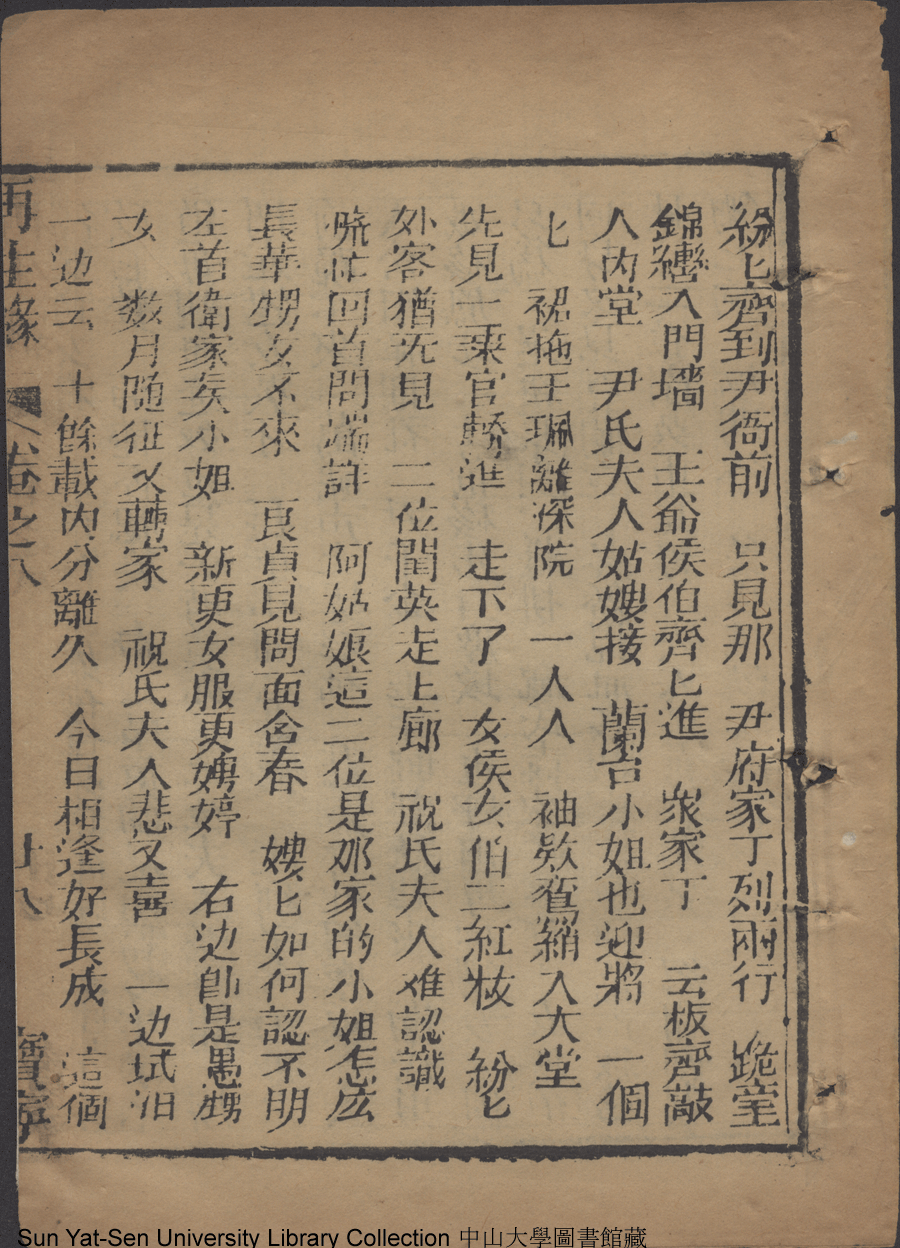 紛匕齊到尹衙前　只見那　尹府家丁列兩行　跪室
錦轡入門墻　王爺侯伯齊匕進　眾家丁　云板齊敲
人内堂　尹氏夫人姑嫂接　蘭台小姐也迎將　一個
匕　裙拖玉珮離深院　一人人　袖欵鸞綃入大堂
先見一乗官轎進　走下了　女侯女伯二紅妝　紛匕
外客猶无見　二位閨英走上廊　祝氏夫人难認識
慌忙回首問端詳　阿姑娘這二位是那家的小姐怎庅
長華甥女不來　良貞見問面含春　嫂匕如何認不明
左首衛家矣小姐　新更女服更娉婷　右边卽是愚甥
女　数月随征又轉家　祝氏夫人悲又喜　一边拭泪
一边云　十餘載内分離久　今日相逢好長成　這個
再生緣　卷之八　十八　寶寧
Sun Yat-Sen University Library Collection 中山大學圖書館藏